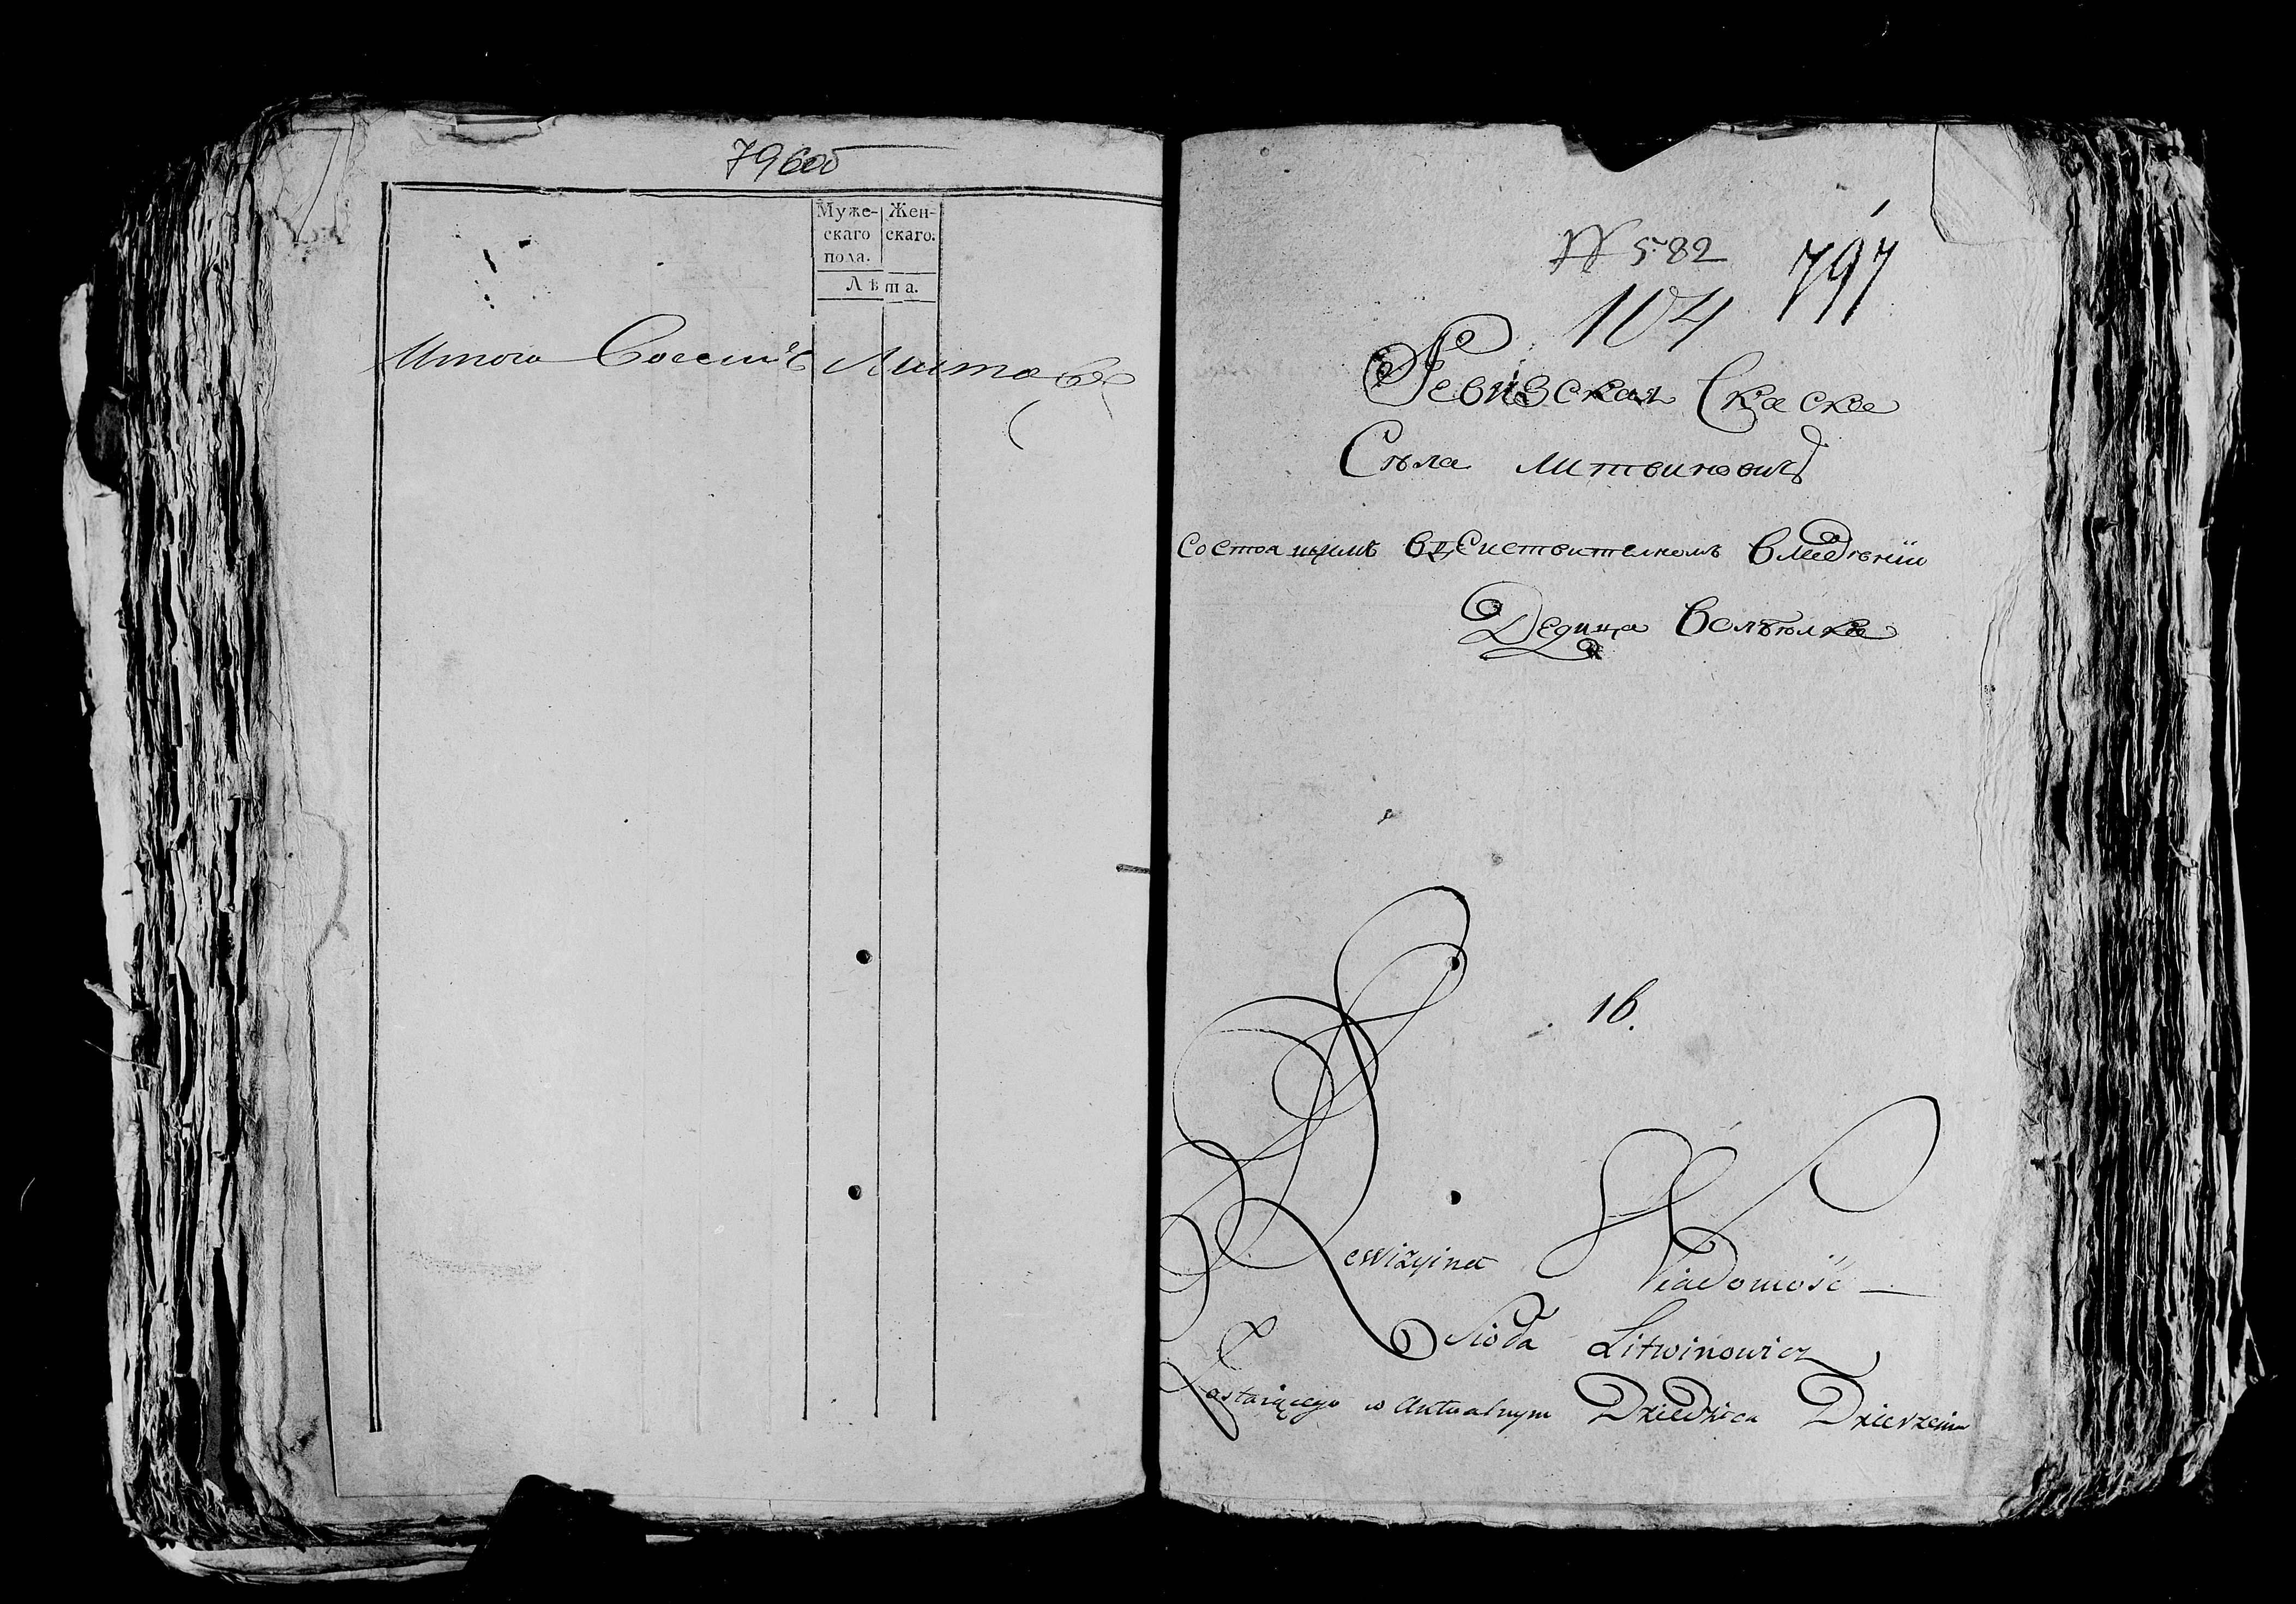 796об
Муже-
скаго
пола.
Жен-
скаго.
Лѣта.
Итого Восемь Листовъ
№ 582
797
104
Ревизская Скаска
Сѣла Литвиновичъ
Состоящимъ вдействителномъ владѣнии
Дедица
16.
Rewizyina Wiadomość
Sioła Litwinowicz
Zostaiącego w Aktualnym Dziedzica Dzierzeniu